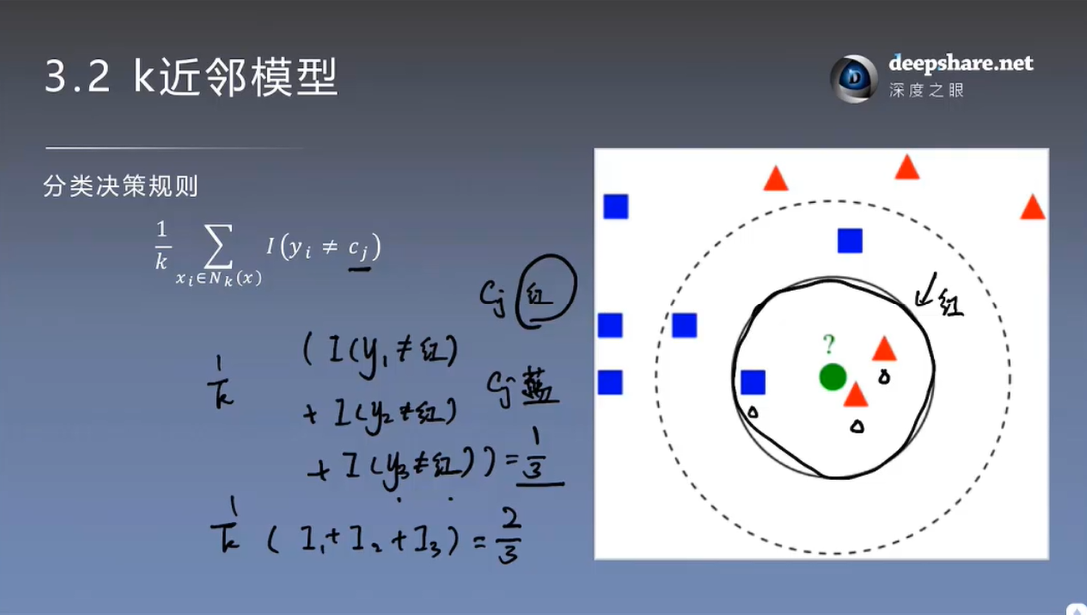 3.2 k近邻模型
deepshare.net
深度之眼
分类决策规则
1/k ∑ I(yᵢ ≠ cⱼ)
xᵢ∈Nₖ(x)
Cj 红
1/k ( I(y₁≠红)
Cj 蓝
+ I(y₂≠红)
+ I(y₃≠红)) = 1/3
1/k ( I₁+I₂+I₃) = 2/3
红
?